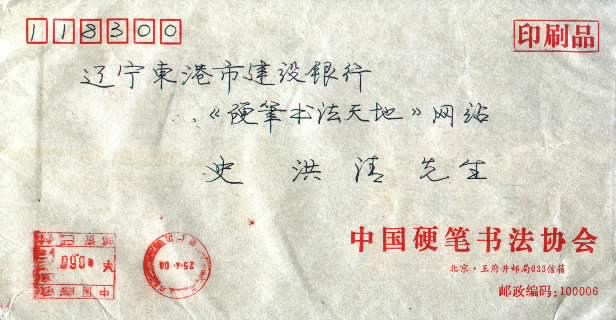 118300
印刷品
辽宁東港市建设银行
《硬筆书法天地》网站
史洪清先生
中国硬笔书法协会
北京·王府井邮局033信箱
邮政编码:100006
中国邮政
0060
25.4.00